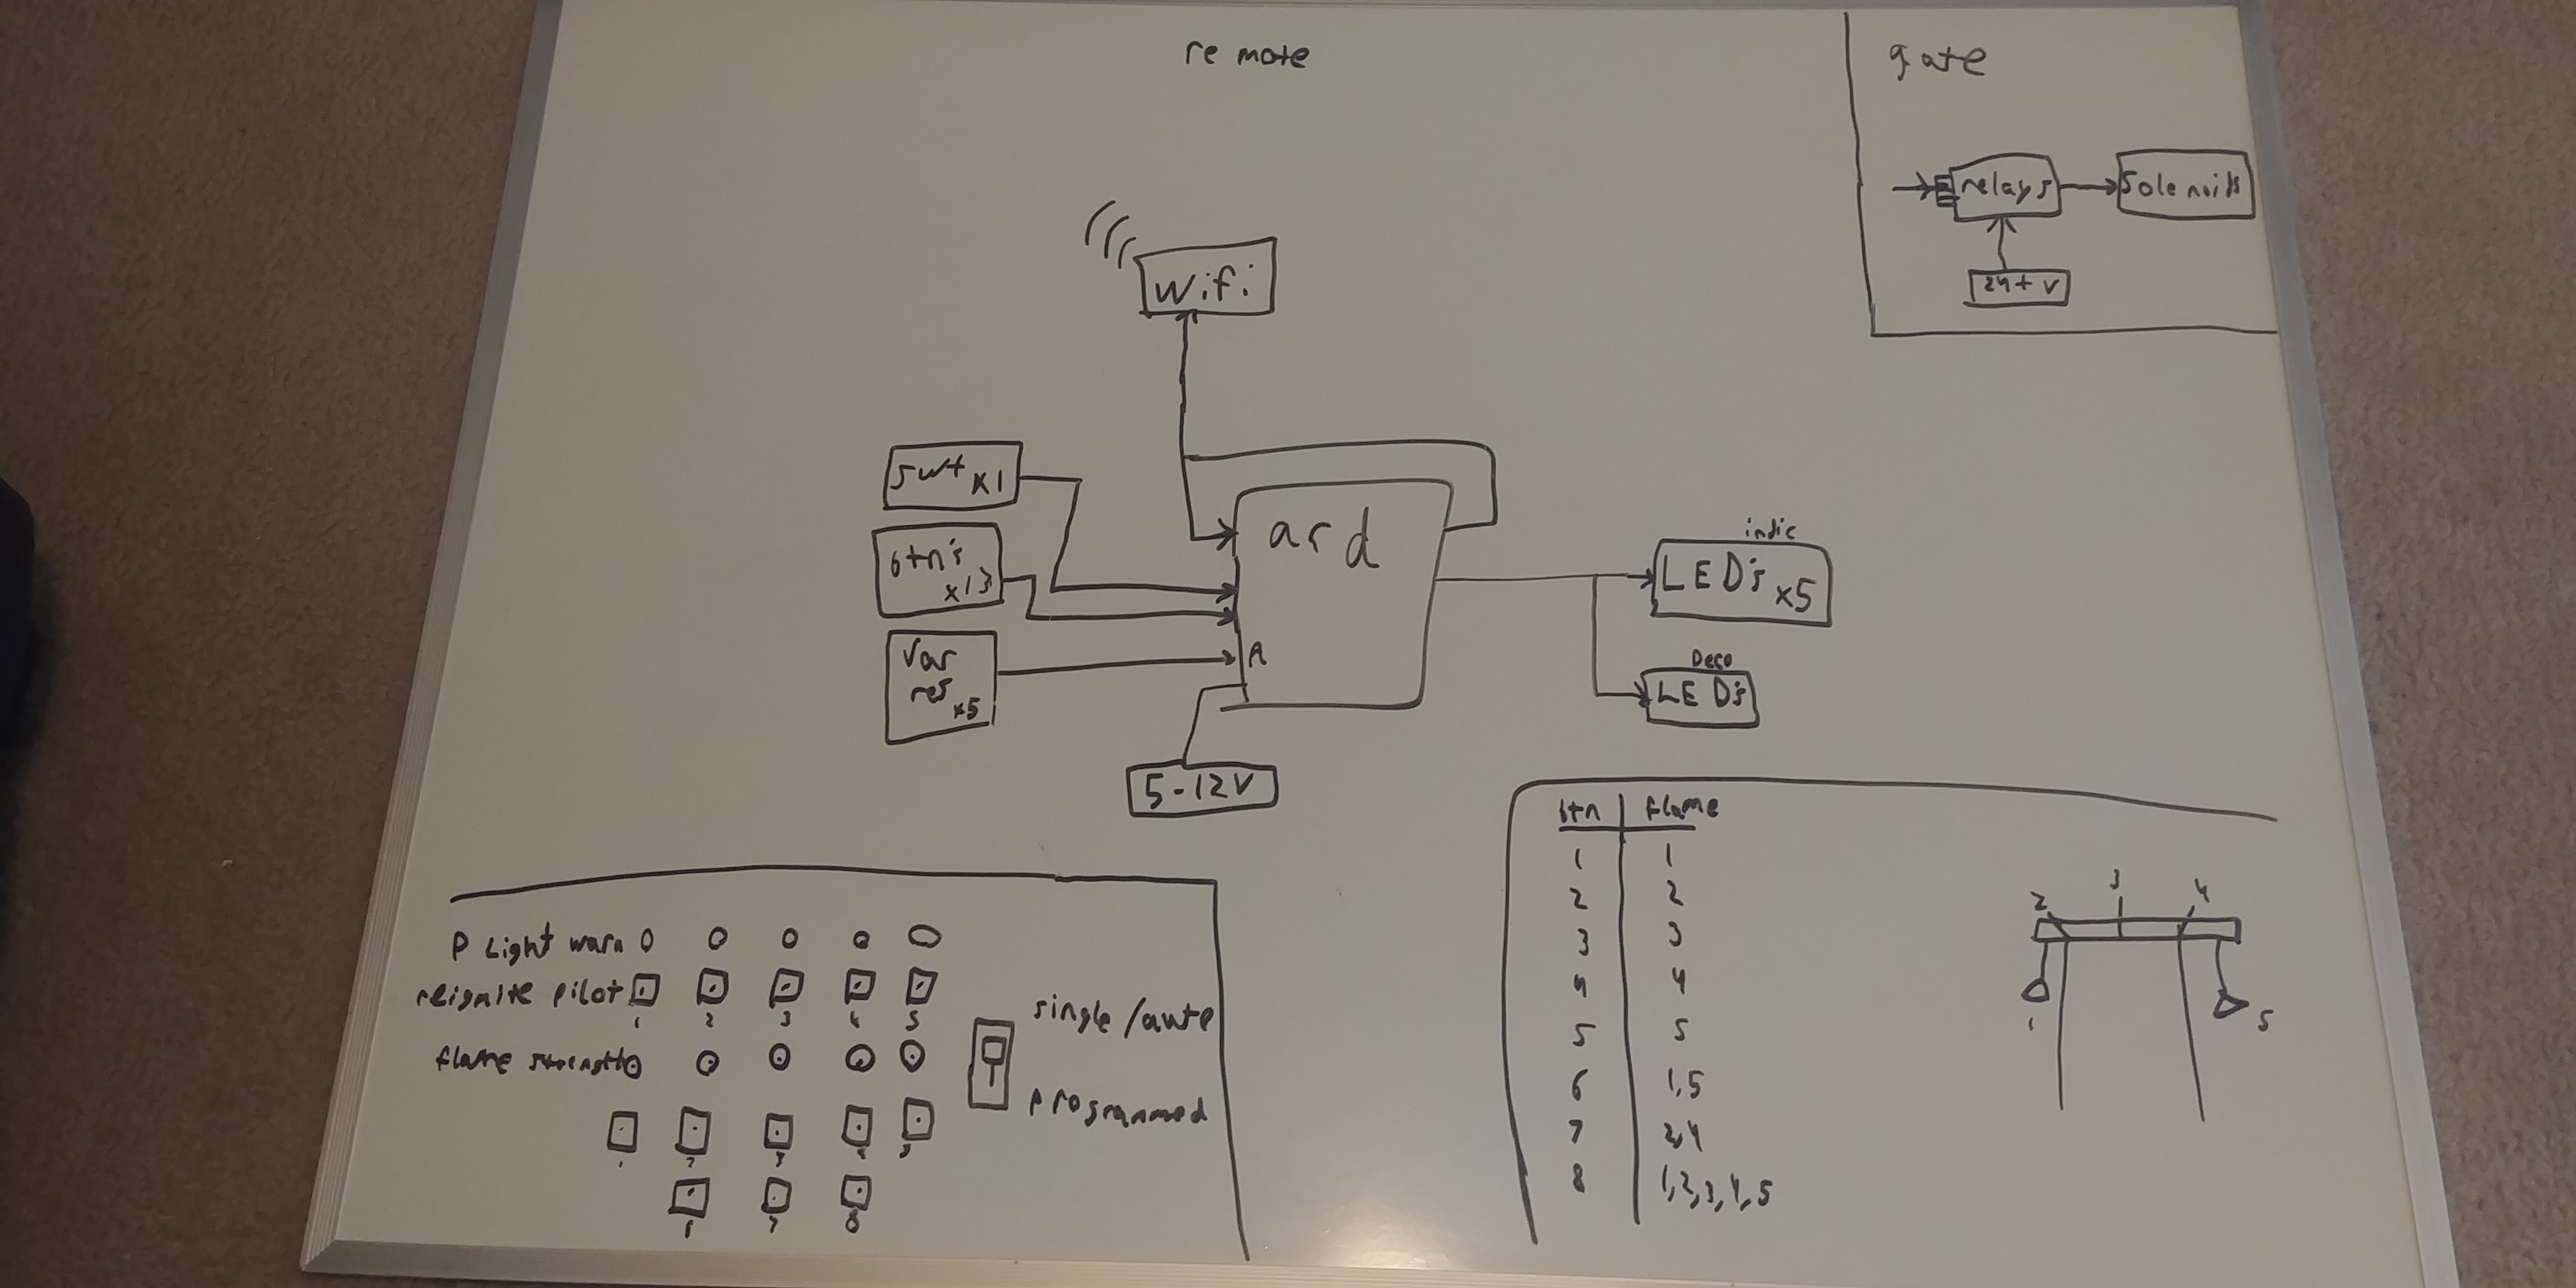 re mote
gate
relays
Solenoids
24+ V
wifi
swt x1
btn's
x13
Var
res
x5
ard
A
5-12V
indic
LED's x5
Deco
LED's
P Light warn
reignite pilot
1 2 3 4 5
flame strength
1 2 3 4 5
6 7 8
single/auto
programmed
btn flame
1 1
2 2
3 3
4 4
5 5
6 1,5
7 2,4
8 1,2,3,4,5
3
2 4
1 5